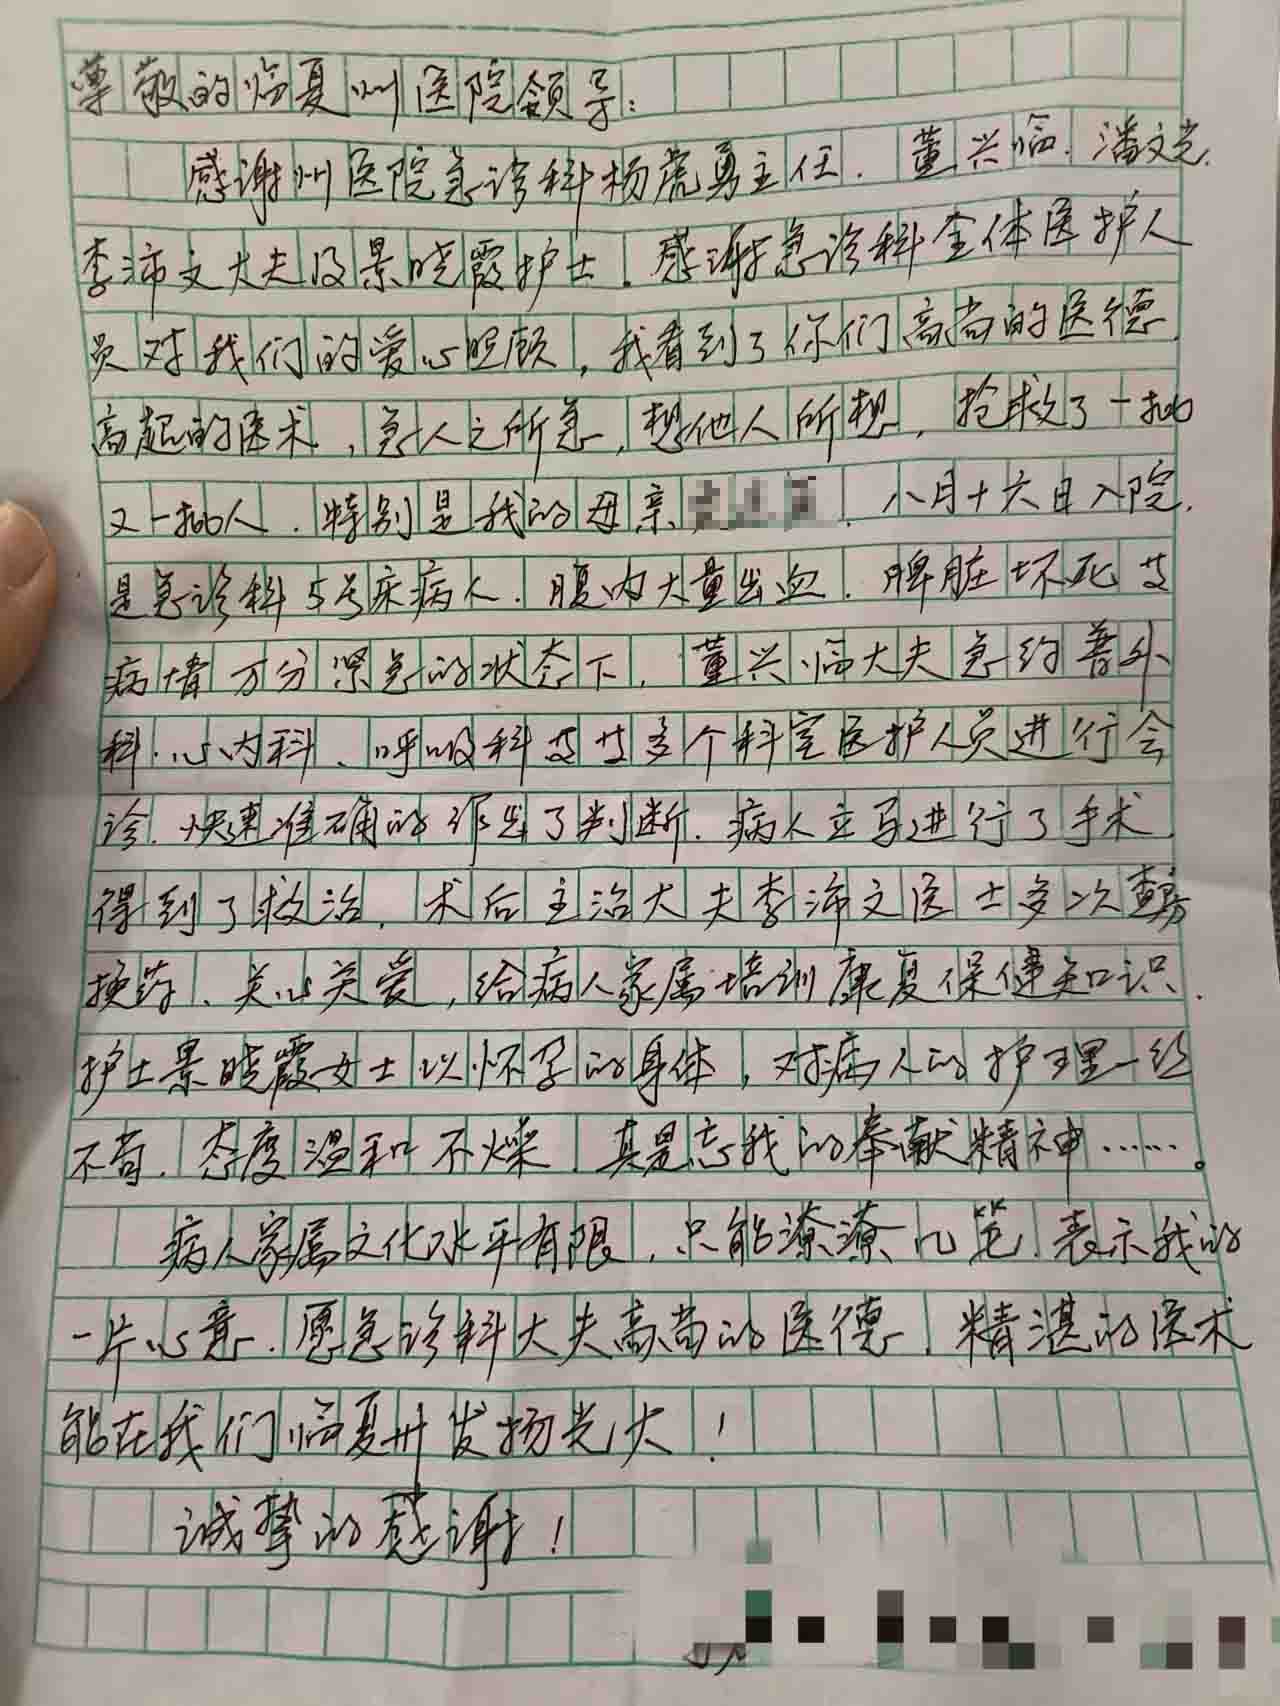 尊敬的临夏州医院领导:
感谢州医院急诊科杨虎勇主任.董兴临.潘文光.
李沛文大夫及景晓霞护士.感谢急诊科全体医护人
员对我们的爱心照顾,我看到了你们高尚的医德.
高超的医术,急人之所急,想他人所想,抢救了一批
又一批人.特别是我的母亲.八月十六日入院.
是急诊科5号床病人.腹内大量出血.脾脏坏死
病情万分紧急的状态下.董兴临大夫急约普外
科.心内科、呼吸科多个科室医护人员进行会
诊.快速准确的作出了判断.病人立马进行了手术.
得到了救治.术后主治大夫李沛文医士多次查房
换药、关心关爱,给病人家属培训康复保健知识.
护士景晓霞女士以怀孕的身体,对病人的护理一丝
不苟.态度温和不燥.真是忘我的奉献精神……。
病人家属文化水平有限,只能潦潦几笔.表示我的
一片心意.愿急诊科大夫高尚的医德.精湛的医术
能在我们临夏州发扬光大!
诚挚的感谢!